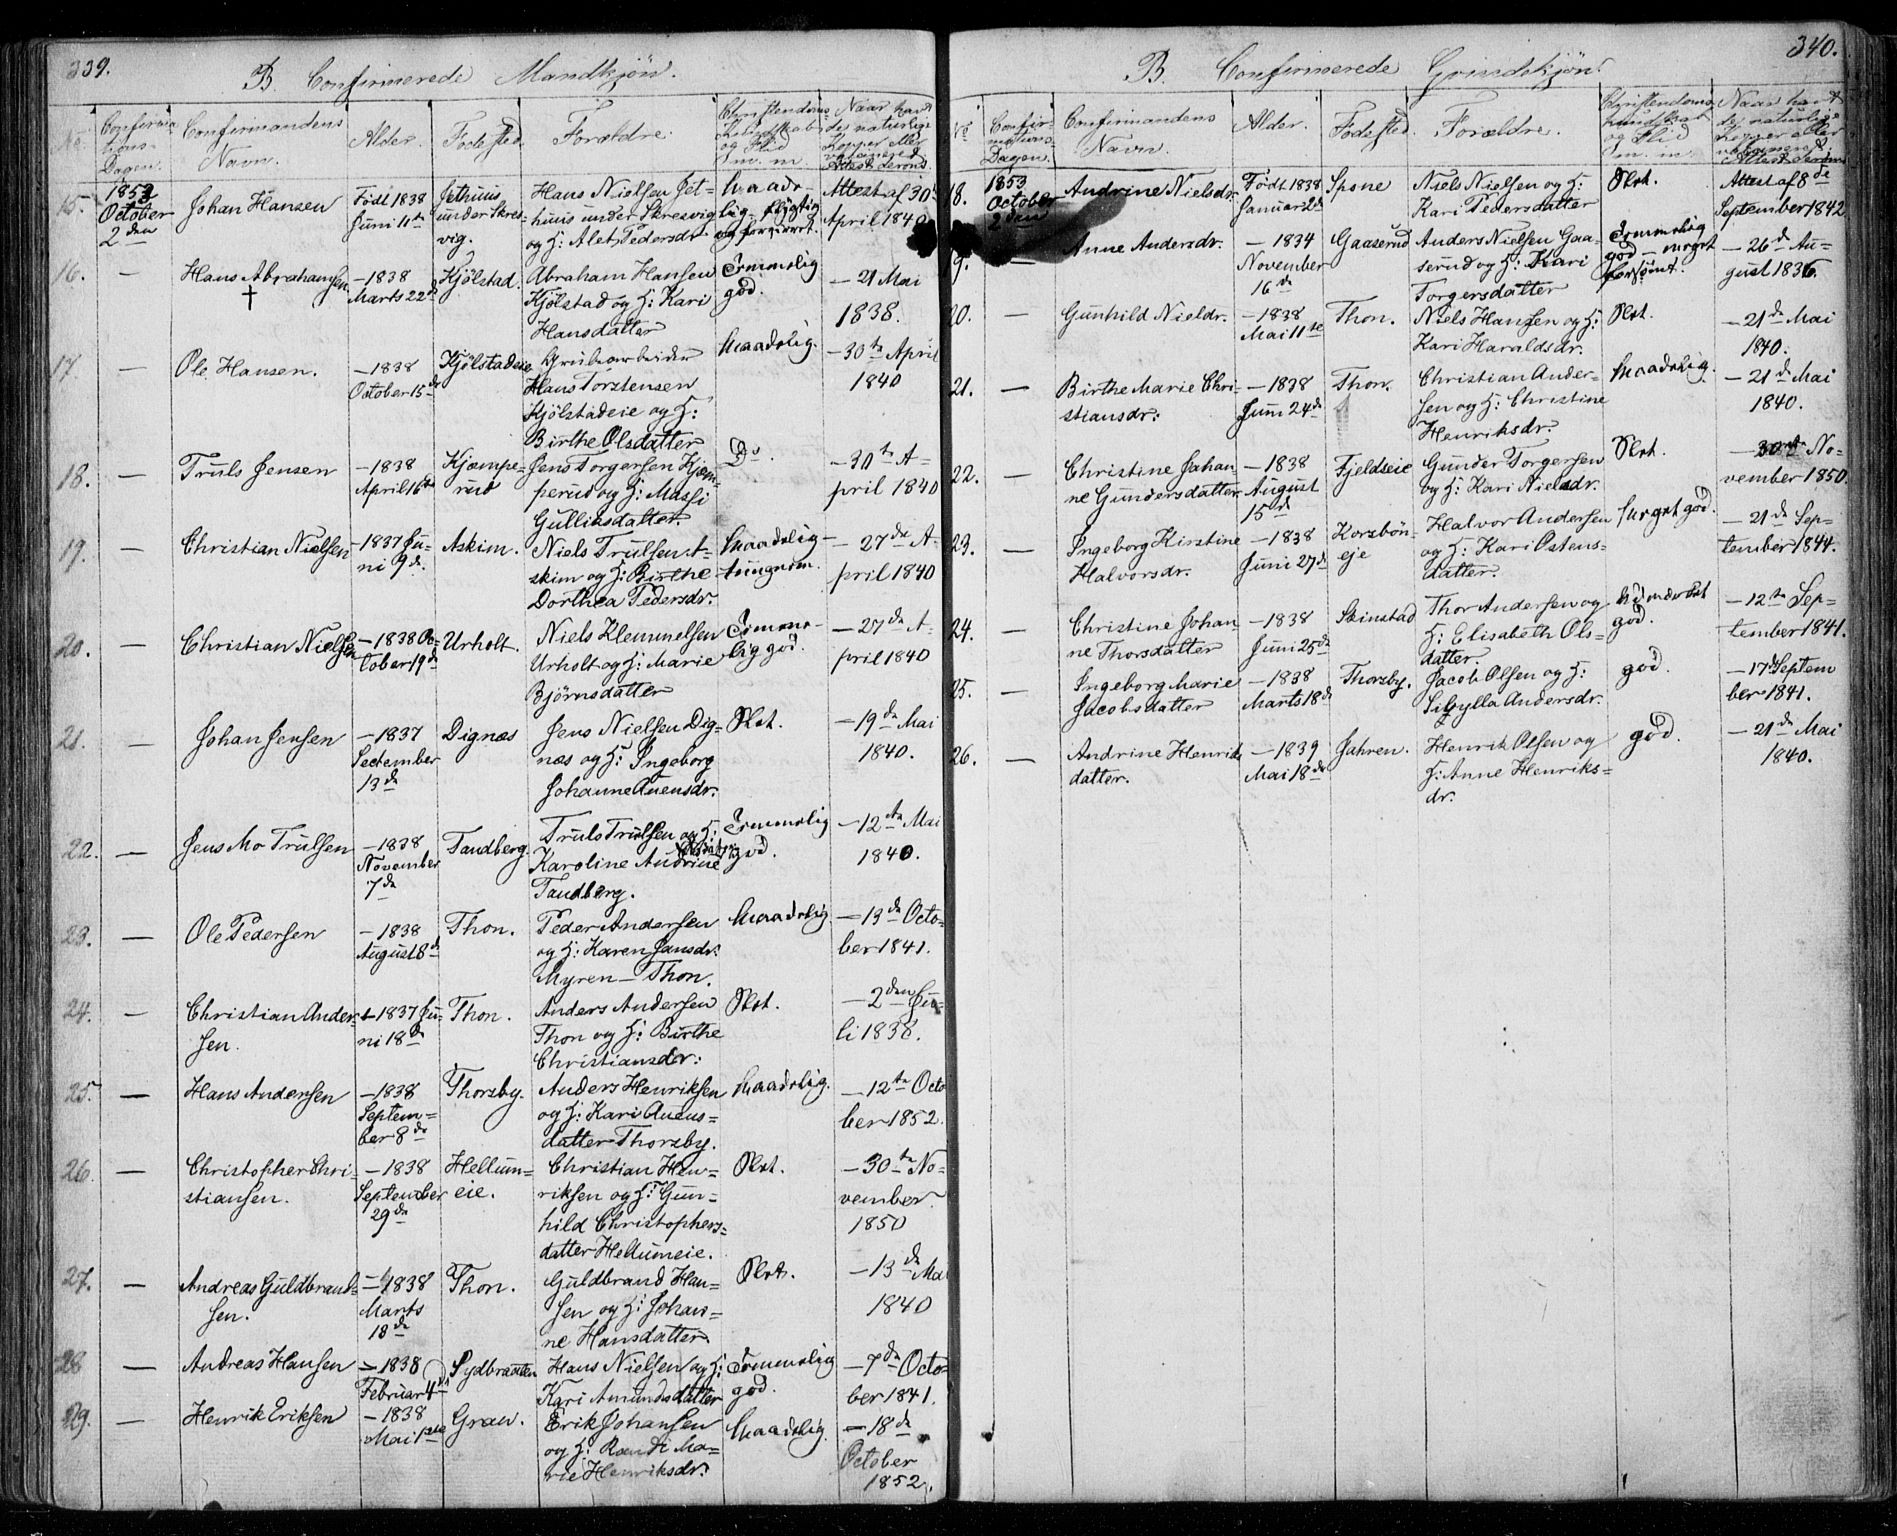 339.
B. Confirmerede Mandkjøn.
No. Confirmations-Dagen. Confirmandens Navn. Alder. Fødested. Forældre. Christendoms Kundskab og Flid m. m. Naar havt de naturlige Kopper eller vaccineret Attest derom
15. 1853 October 2den Johan Hansen Født 1838 Juni 11te Jethuus under Skresvig. Hans Nielsen Jethuus under Skresvig og H: Alet Pedersdr. Maadelig - flygtig og forsømt. Attest af 30te April 1840
16. — Hans Abrahamsen † — 1838 Marts 22d Kjölstad. Abraham Hansen Kjölstad og H: Kari Hansdatter Temmelig god. — 21 Mai 1838.
17. — Ole Hansen. — 1838 October 15de Kjölstadeie Grubearbeider Hans Torstensen Kjölstadeie og H: Birthe Olsdatter Maadelig. — 30te April 1840
18. — Truls Jensen — 1838 April 16de Kjæmperud Jens Torgersen Kjæmperud og H: Massi Gulliksdatter. Do. — 30te April 1840
19. — Christian Nielsen — 1837 Juni 9d. Askim. Niels Trulsen Askim og H: Birthe Dorthea Pedersdr. Maadelig - tungnem. — 27de April 1840
20. — Christian Nielsen — 1838 October 19de Urholt. Niels Klemmetsen Urholt og H: Marie Bjørnsdatter Temmelig god. — 27de April 1840
21. — Johan Jensen — 1837 September 13de Dignæs Jens Nielsen Dignæs og H: Ingeborg Johanne Auensdr. Slet. — 19de Mai 1840.
22. — Jens Mo Trulsen — 1838 November 7de Tandberg. Truls Trulsen og H: Karoline Andrine Tandberg. Temmelig god. — 12te Mai 1840.
23. — Ole Pedersen — 1838 August 8de Thon. Peder Andersen og H: Karen Jansdr. Myren - Thon. Maadelig. — 13de October 1841.
24. — Christian Andersen. — 1837 Juni 18de Thon. Anders Andersen Thon og H: Birthe Christiansdr: Slet. — 2den Juli 1838.
25. — Hans Andersen — 1838 September 8de Thorsby. Anders Henriksen og H: Kari Auensdatter Thorsby. Maadelig. — 12te October 1852.
26. — Christopher Christiansen. — 1838 September 29de Hellumeie. Christian Henriksen og H: Gunhild Christophersdatter Hellumeie. Slet. — 30te November 1850
27. — Andreas Guldbrandsen. — 1838 Marts 18de Thon. Guldbrand Hansen og H: Johanne Hansdatter. Slet. — 13de Mai 1840
28 — Andreas Hansen — 1838 Februar 4de Sydbraaten Hans Nielsen og H: Kari Amundsdatter Temmelig god. — 7de October 1841.
29. — Henrik Eriksen — 1838 Mai 1ste Grav. Erik Johansen og H: Randi Marie Henriksdr. Maadelig. — 18de October 1852.
340.
B. Confirmerede Qvindekjøn.
No. Confirmations-Dagen. Confirmandens Navn. Alder. Fødested. Forældre. Christendoms kundskab og Flid m. m. Naar havt de naturlige Kopper eller vaccineret Attest derom
18. 1853 October 2den Andrine Nielsdr. Født 1838 Januar 2de Spone Niels Nielsen og H: Kari Pedersdatter Slet. Attest af 8de September 1842
19. — Anne Andersdr. — 1834 November 16de Gaaserud Anders Nielsen Gaaserud og H: Kari Torgersdatter Temmelig god - meget forsømt. — 26de August 1836.
20. — Gunhild Nielsdr. — 1838 Mai 11te Thon. Niels Hansen og H: Kari Haraldsdr. Slet. — 21de Mai 1840.
21. — Birthe Marie Christiansdr: — 1838 Juni 24de Thon. Christian Andersen og H: Christine Henriksdr. Maadelig. — 21de Mai 1840.
22. — Christine Johanne Gundersdatter — 1838 August 15de Fjeldseie Gunder Torgersen og H: Kari Nielsdr. Slet. — 30te November 1850.
23. — Ingeborg Kirstine Halvorsdr. — 1838 Juni 27de Korsbøneje Halvor Andersen og H: Kari Østensdatter. Meget god. — 21de September 1844.
24. — Christine Johanne Thorsdatter — 1838 Juni 25de Stinstad Thor Andersen og H: Elisabeth Olsdatter. god. — 12te September 1841.
25. — Ingeborg Marie Jacobsdatter — 1838 Marts 18de Thorsby. Jacob Olsen og H: Sibylla Andersdr. god. — 17de September 1841.
26. — Andrine Henriksdatter. — 1839 Mai 18de Jahren. Henrik Olsen og H: Anne Henriksdr. god. — 21de Mai 1840.